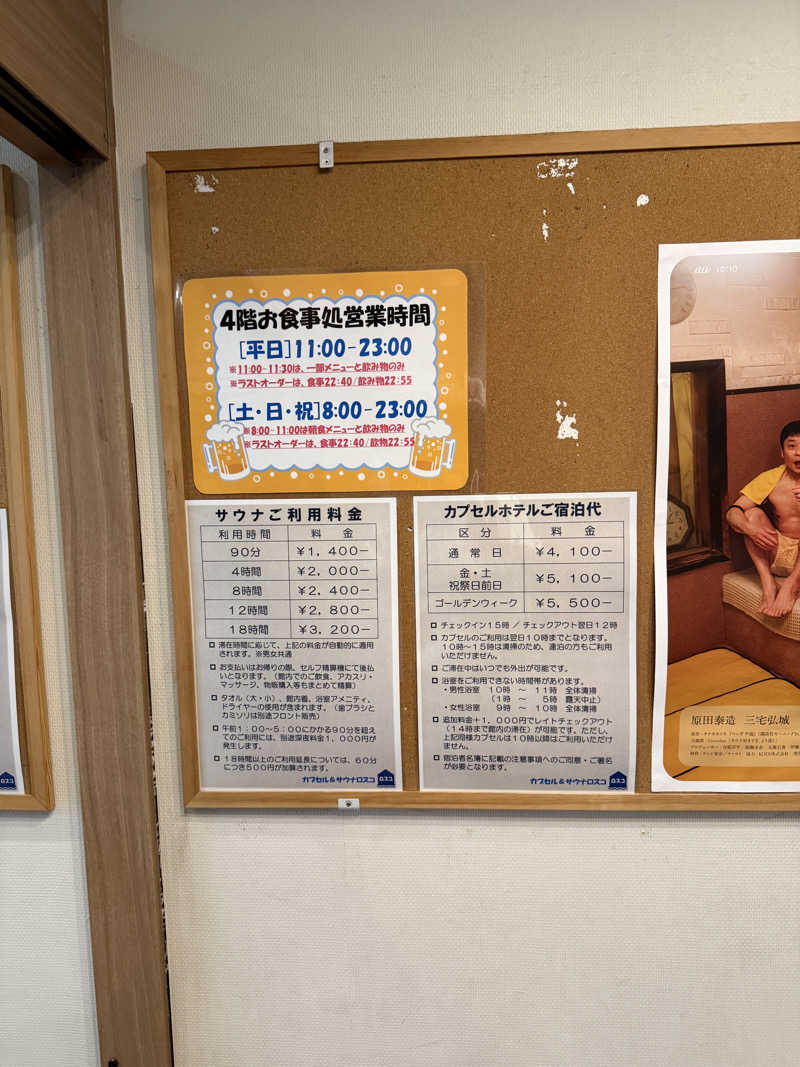 4階お食事処営業時間
[平日]11:00-23:00
※11:00-11:30は、一部メニューと飲み物のみ
※ラストオーダーは、食事22:40/飲み物22:55
[土・日・祝]8:00-23:00
※8:00-11:00は朝食メニューと飲み物のみ
※ラストオーダーは、食事22:40/飲物22:55
サウナご利用料金
利用時間 料金
90分 ￥1,400−
4時間 ￥2,000−
8時間 ￥2,400−
12時間 ￥2,800−
18時間 ￥3,200−
滞在時間に応じて、上記の料金が自動的に適用
されます。※男女共通
お支払いはお帰りの際、セルフ精算機にて後払
いとなります。（館内でのご飲食、アカスリ・
マッサージ、物販購入等もまとめて精算）
タオル（大・小）、館内着、浴室アメニティ、
ドライヤーの使用が含まれます。（歯ブラシと
カミソリは別途フロント販売）
午前1：00～5：00にかかる90分を超え
てのご利用には、別途深夜料金1，000円が
発生します。
18時間以上のご利用延長については、60分
につき500円が加算されます。
カプセル&サウナロスコ
ロスコ
カプセルホテルご宿泊代
区分 料金
通常日 ￥4,100−
金・土
祝祭日前日 ￥5,100−
ゴールデンウィーク ￥5,500−
チェックイン15時 ／ チェックアウト翌日12時
カプセルのご利用は翌日10時までとなります。
10時～15時は清掃のため、連泊の方もご利用
いただけません。
ご滞在中はいつでも外出が可能です。
浴室をご利用できない時間帯があります。
・男性浴室 10時 ～ 11時 全体清掃
（1時 ～ 5時 露天中止）
・女性浴室 9時 ～ 10時 全体清掃
追加料金＋1，000円でレイトチェックアウト
（14時まで館内の滞在）が可能です。ただし、
上記同様カプセルは10時以降はご利用いただけ
ません。
宿泊者名簿に記載の注意事項へのご同意・ご署名
が必要となります。
カプセル&サウナロスコ
ロスコ
au
原田泰造 三宅弘城